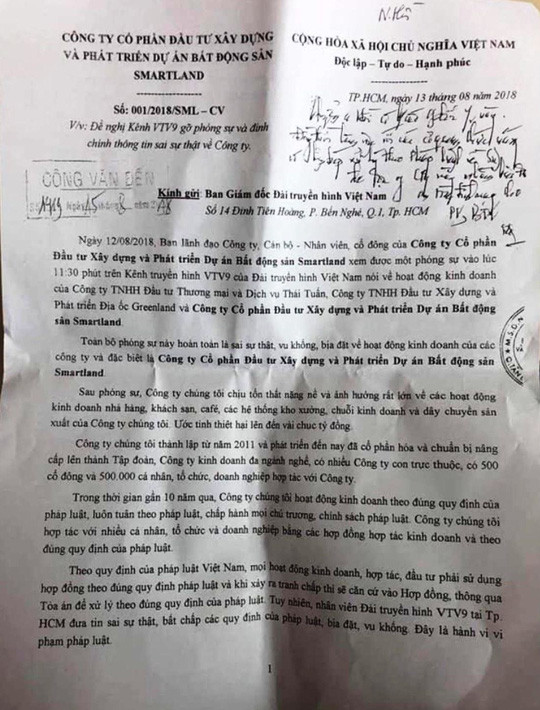 N.Hà
CÔNG TY CỔ PHẦN ĐẦU TƯ XÂY DỰNG
VÀ PHÁT TRIỂN DỰ ÁN BẤT ĐỘNG SẢN
SMARTLAND
CỘNG HÒA XÃ HỘI CHỦ NGHĨA VIỆT NAM
Độc lập – Tự do – Hạnh phúc
Số: 001/2018/SML – CV
TP.HCM, ngày 13 tháng 08 năm 2018
V/v: Đề nghị Kênh VTV9 gỡ phóng sự và đính
chính thông tin sai sự thật về Công ty.
CÔNG VĂN ĐẾN
Số 1919 Ngày 15 8
Kính gửi: Ban Giám đốc Đài truyền hình Việt Nam
Số 14 Đinh Tiên Hoàng, P. Bến Nghé, Q.1, Tp. HCM
Ngày 12/08/2018, Ban lãnh đạo Công ty, Cán bộ - Nhân viên, cổ đông của Công ty Cổ phần
Đầu tư Xây dựng và Phát triển Dự án Bất động sản Smartland xem được một phóng sự vào lúc
11:30 phút trên Kênh truyền hình VTV9 của Đài truyền hình Việt Nam nói về hoạt động kinh doanh
của Công ty TNHH Đầu tư Thương mại và Dịch vụ Thái Tuấn, Công ty TNHH Đầu tư Xây dựng và
Phát triển Địa ốc Greenland và Công ty Cổ phần Đầu tư Xây dựng và Phát triển Dự án Bất động
sản Smartland.
Toàn bộ phóng sự này hoàn toàn là sai sự thật, vu khống, bịa đặt về hoạt động kinh doanh của các
công ty và đặc biệt là Công ty Cổ phần Đầu tư Xây dựng và Phát triển Dự án Bất động sản
Smartland.
Sau phóng sự, Công ty chúng tôi chịu tổn thất nặng nề và ảnh hưởng rất lớn về các hoạt động
kinh doanh nhà hàng, khách sạn, café, các hệ thống kho xưởng, chuỗi kinh doanh và dây chuyền sản
xuất của Công ty chúng tôi. Ước tính thiệt hại lên đến vài chục tỷ đồng.
Công ty chúng tôi thành lập từ năm 2011 và phát triển đến nay đã cổ phần hóa và chuẩn bị nâng
cấp lên thành Tập đoàn, Công ty kinh doanh đa ngành nghề, có nhiều Công ty con trực thuộc, có 500
cổ đông và 500.000 cá nhân, tổ chức, doanh nghiệp hợp tác với Công ty.
Trong thời gian gần 10 năm qua, Công ty chúng tôi hoạt động kinh doanh theo đúng quy định của
pháp luật, luôn tuân theo pháp luật, chấp hành mọi chủ trương, chính sách pháp luật. Công ty chúng tôi
hợp tác với nhiều cá nhân, tổ chức và doanh nghiệp bằng các hợp đồng hợp tác kinh doanh và theo
đúng quy định của pháp luật.
Theo quy định của pháp luật Việt Nam, mọi hoạt động kinh doanh, hợp tác, đầu tư phải sử dụng
hợp đồng theo đúng quy định pháp luật và khi xảy ra tranh chấp thì sẽ căn cứ vào Hợp đồng, thông qua
Tòa án để xử lý theo đúng quy định của pháp luật. Tuy nhiên, nhân viên Đài truyền hình VTV9 tại Tp.
HCM đưa tin sai sự thật, bất chấp các quy định của pháp luật, bịa đặt, vu khống. Đây là hành vi vi
phạm pháp luật.
1